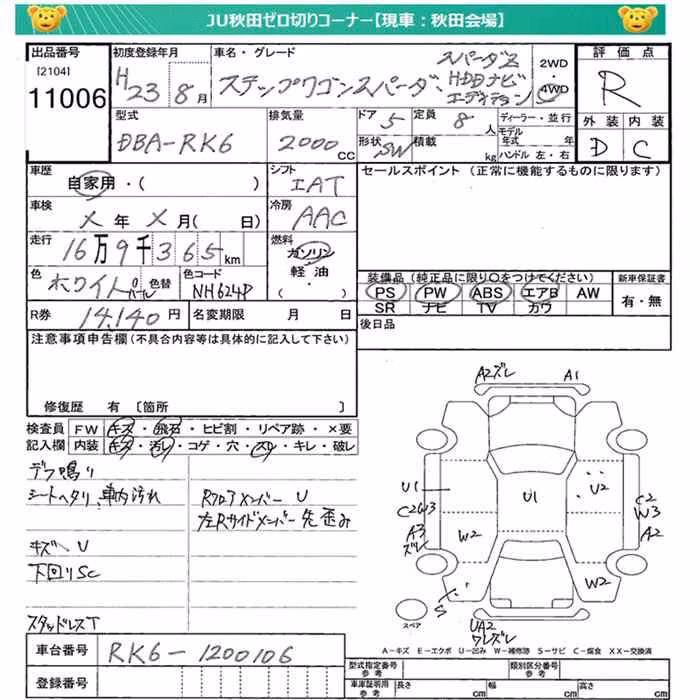 JU秋田ゼロ切りコーナー【現車：秋田会場】
出品番号 [2104] 11006
初度登録年月 H23年 8月
車名・グレード ステップワゴンスパーダ スパーダZ HDDナビ エディション
2WD・4WD
評価点 R
外装 D 内装 C
型式 DBA-RK6
排気量 2000 CC
ドア 5
形状 SW
定員 8 人
積載 kg
ディーラー・並行
モデル年式 年式
ハンドル 左・右
車歴 自家用・( )
シフト IAT
セールスポイント (正常に機能するものに限ります)
車検 X 年 X 月( 日)
冷房 AAC
走行 16万9千365km
燃料 ガソリン・軽油・( )
色 ホワイトパール 色替
色コード NH624P
装備品 (純正品に限り○をつけてください)
新車保証書 有・無
PS PW ABS エアB AW
SR ナビ TV カワ
R券 14,140円 名変期限 月 日
後日品
注意事項申告欄 (不具合内容等は具体的に記入して下さい)
修復歴 有 [箇所 ]
検査員 FW キズ・飛石・ヒビ割・リペア跡・×要
記入欄 内装 キズ・汚レ・コゲ・穴・スリ・キレ・破レ
デフ鳴り
シートヘタリ、車内汚れ
Rフロアメンバー U
左Rサイドメンバー先歪み
キズ〜U
下回りSC
スタッドレスT
A2ズレ A1
U1 U1 U2
C2W3 C2
W3
A3 ズレ A2
W2 W2
S
UA2
ワレズレ
スペア
A-キズ E-エクボ U-凹み W-補修跡 S-サビ C-腐食 XX-交換済
車台番号 RK6-1200106
登録番号
型式指定番号 参考
類別区分番号 参考
車庫証明用 参考 長さ cm 幅 cm 高さ cm